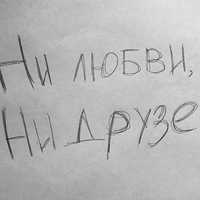 Ни любви,
Ни друзе